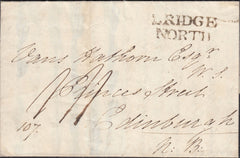 BRIDGE
NORTH
Vans Hathorn Esqr
W.S.
Princes Street
Edinburgh
N.B.
107